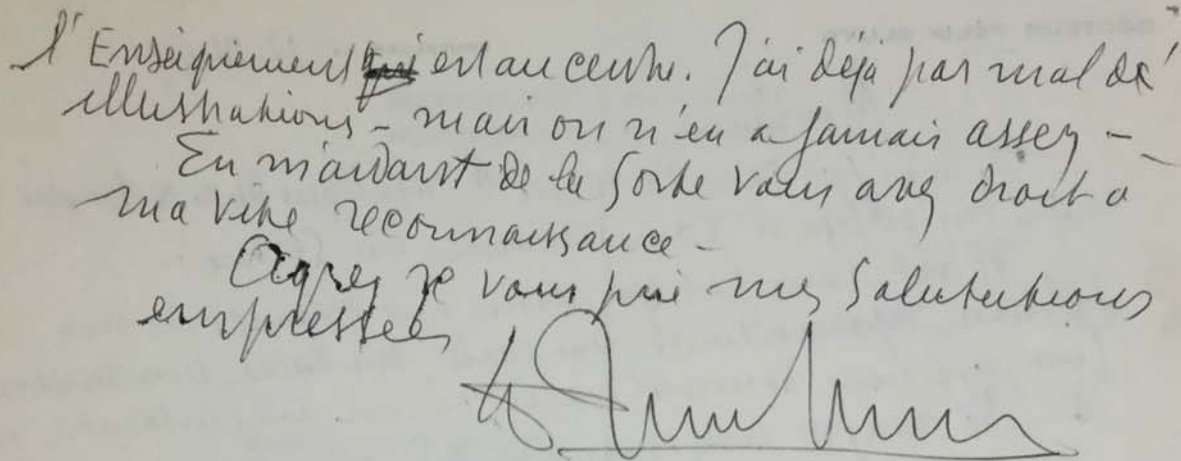 l'Enseignement qui est au centre. J'ai déjà pas mal d'
illustrations - mais on n'en a jamais assez -
En m'aidant de la sorte vous avez droit a
ma vive reconnaissance -
Agréez je vous prie mes Salutations
empressées